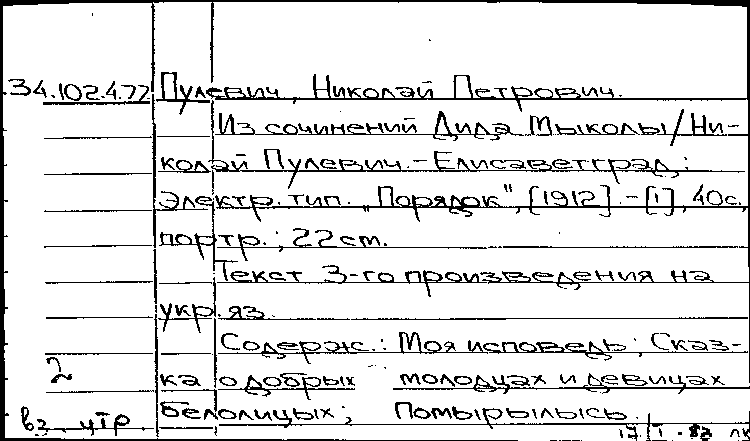 34.102.4.72 Пулевич, Николай Петрович.
Из сочинений Дида Мыколы / Ни-
колай Пулевич. - Елисаветград,:
Электр. тип. „Порядок", [1912]. - [1], 40с,
портр.; 22 cm.
Текст 3-го произведения на
укр. яз.
Содерж.: Моя исповедь; Сказ-
2 ка о добрых молодцах и девицах
вз. утр. белолицых; Помырылысь.
17/I - 83